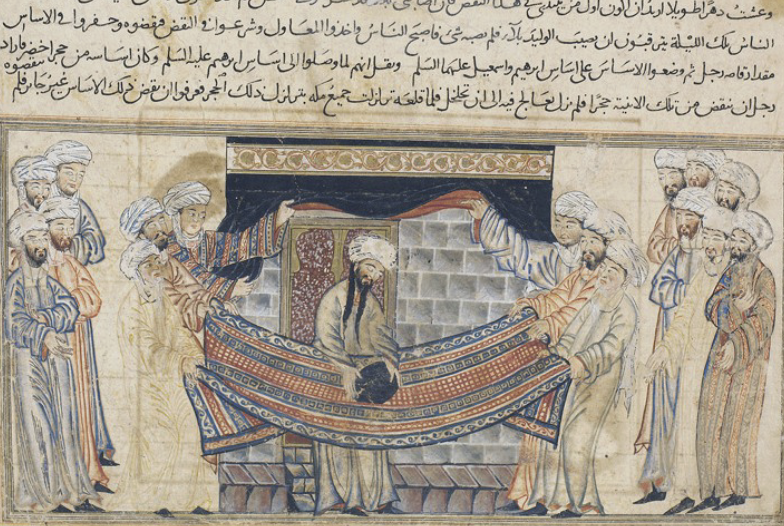 وعشت دهرا طويلا
الناس تلك الليلة يترقبون ان يصيب الوليد بلآء فلم يصبه شى فاصبح الناس واخذوا المعاول وشرعوا فى النقض فنقضوه وحفروا فى الاساس
مقدار قامة رجل ثم وضعوا الاساس على اساس ابرهيم واسمعيل عليهما السلم ونقل انهم لما وصلوا الى اساس ابرهيم عليه السلم وكان اساسه من حجر اخضر فاراد
رجل ان ينقض من تلك الابنية حجرا فلم يزل يعالج فيه الى ان تخلخل فلما قلعه تزلزلت جميع مكه بتزلزل ذلك الحجر فعرفوا ان نقض ذلك الاساس غير جايز فلم
ينقضوه